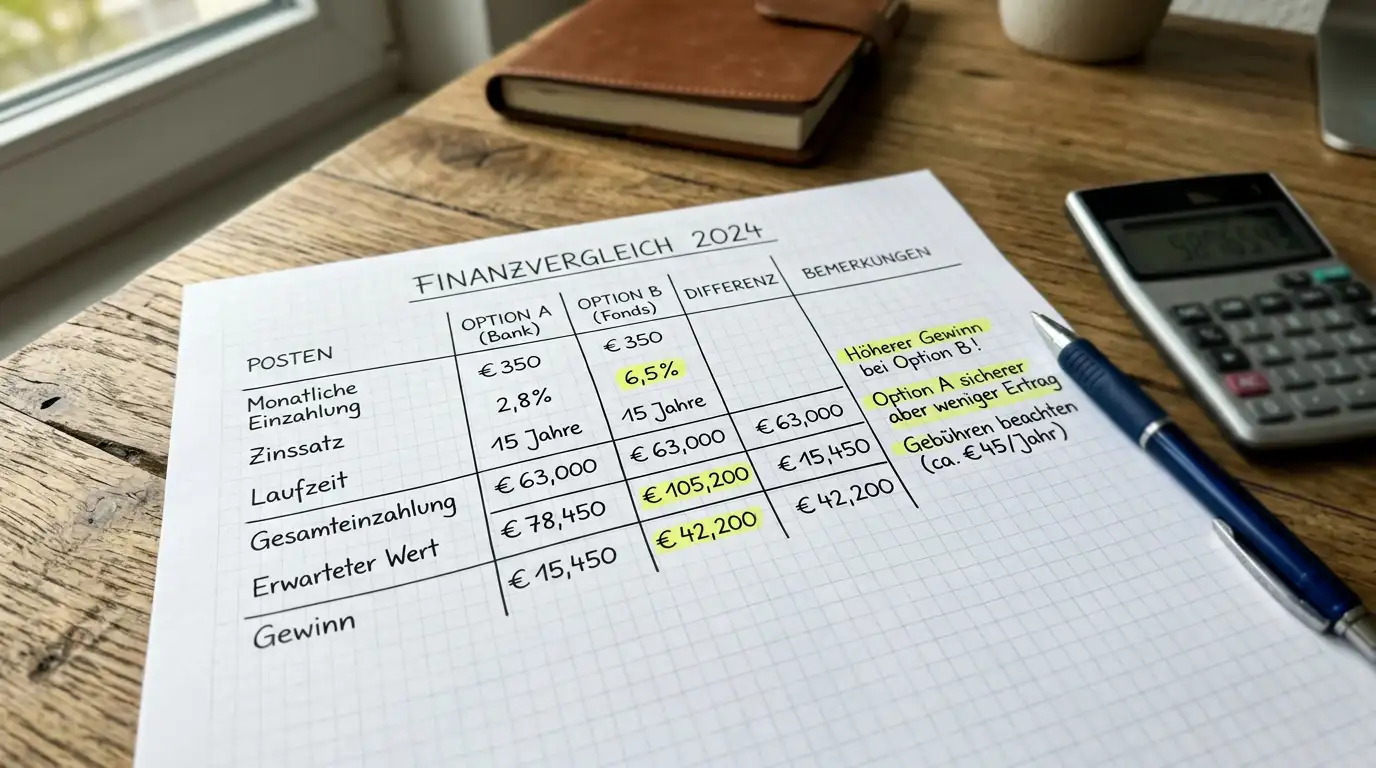 FINANZVERGLEICH 2024
POSTEN
OPTION A
(Bank)
OPTION B
(Fonds)
DIFFERENZ
BEMERKUNGEN
Monatliche
Einzahlung
€ 350
€ 350
Zinssatz
2,8%
6,5%
Laufzeit
15 Jahre
15 Jahre
Gesamteinzahlung
€ 63,000
€ 63,000
€ 63,000
Erwarteter Wert
€ 78,450
€ 105,200
€ 15,450
Gewinn
€ 15,450
€ 42,200
€ 42,200
Höherer Gewinn
bei Option B!
Option A sicherer
aber weniger Ertrag
Gebühren beachten
(ca. € 45/Jahr)